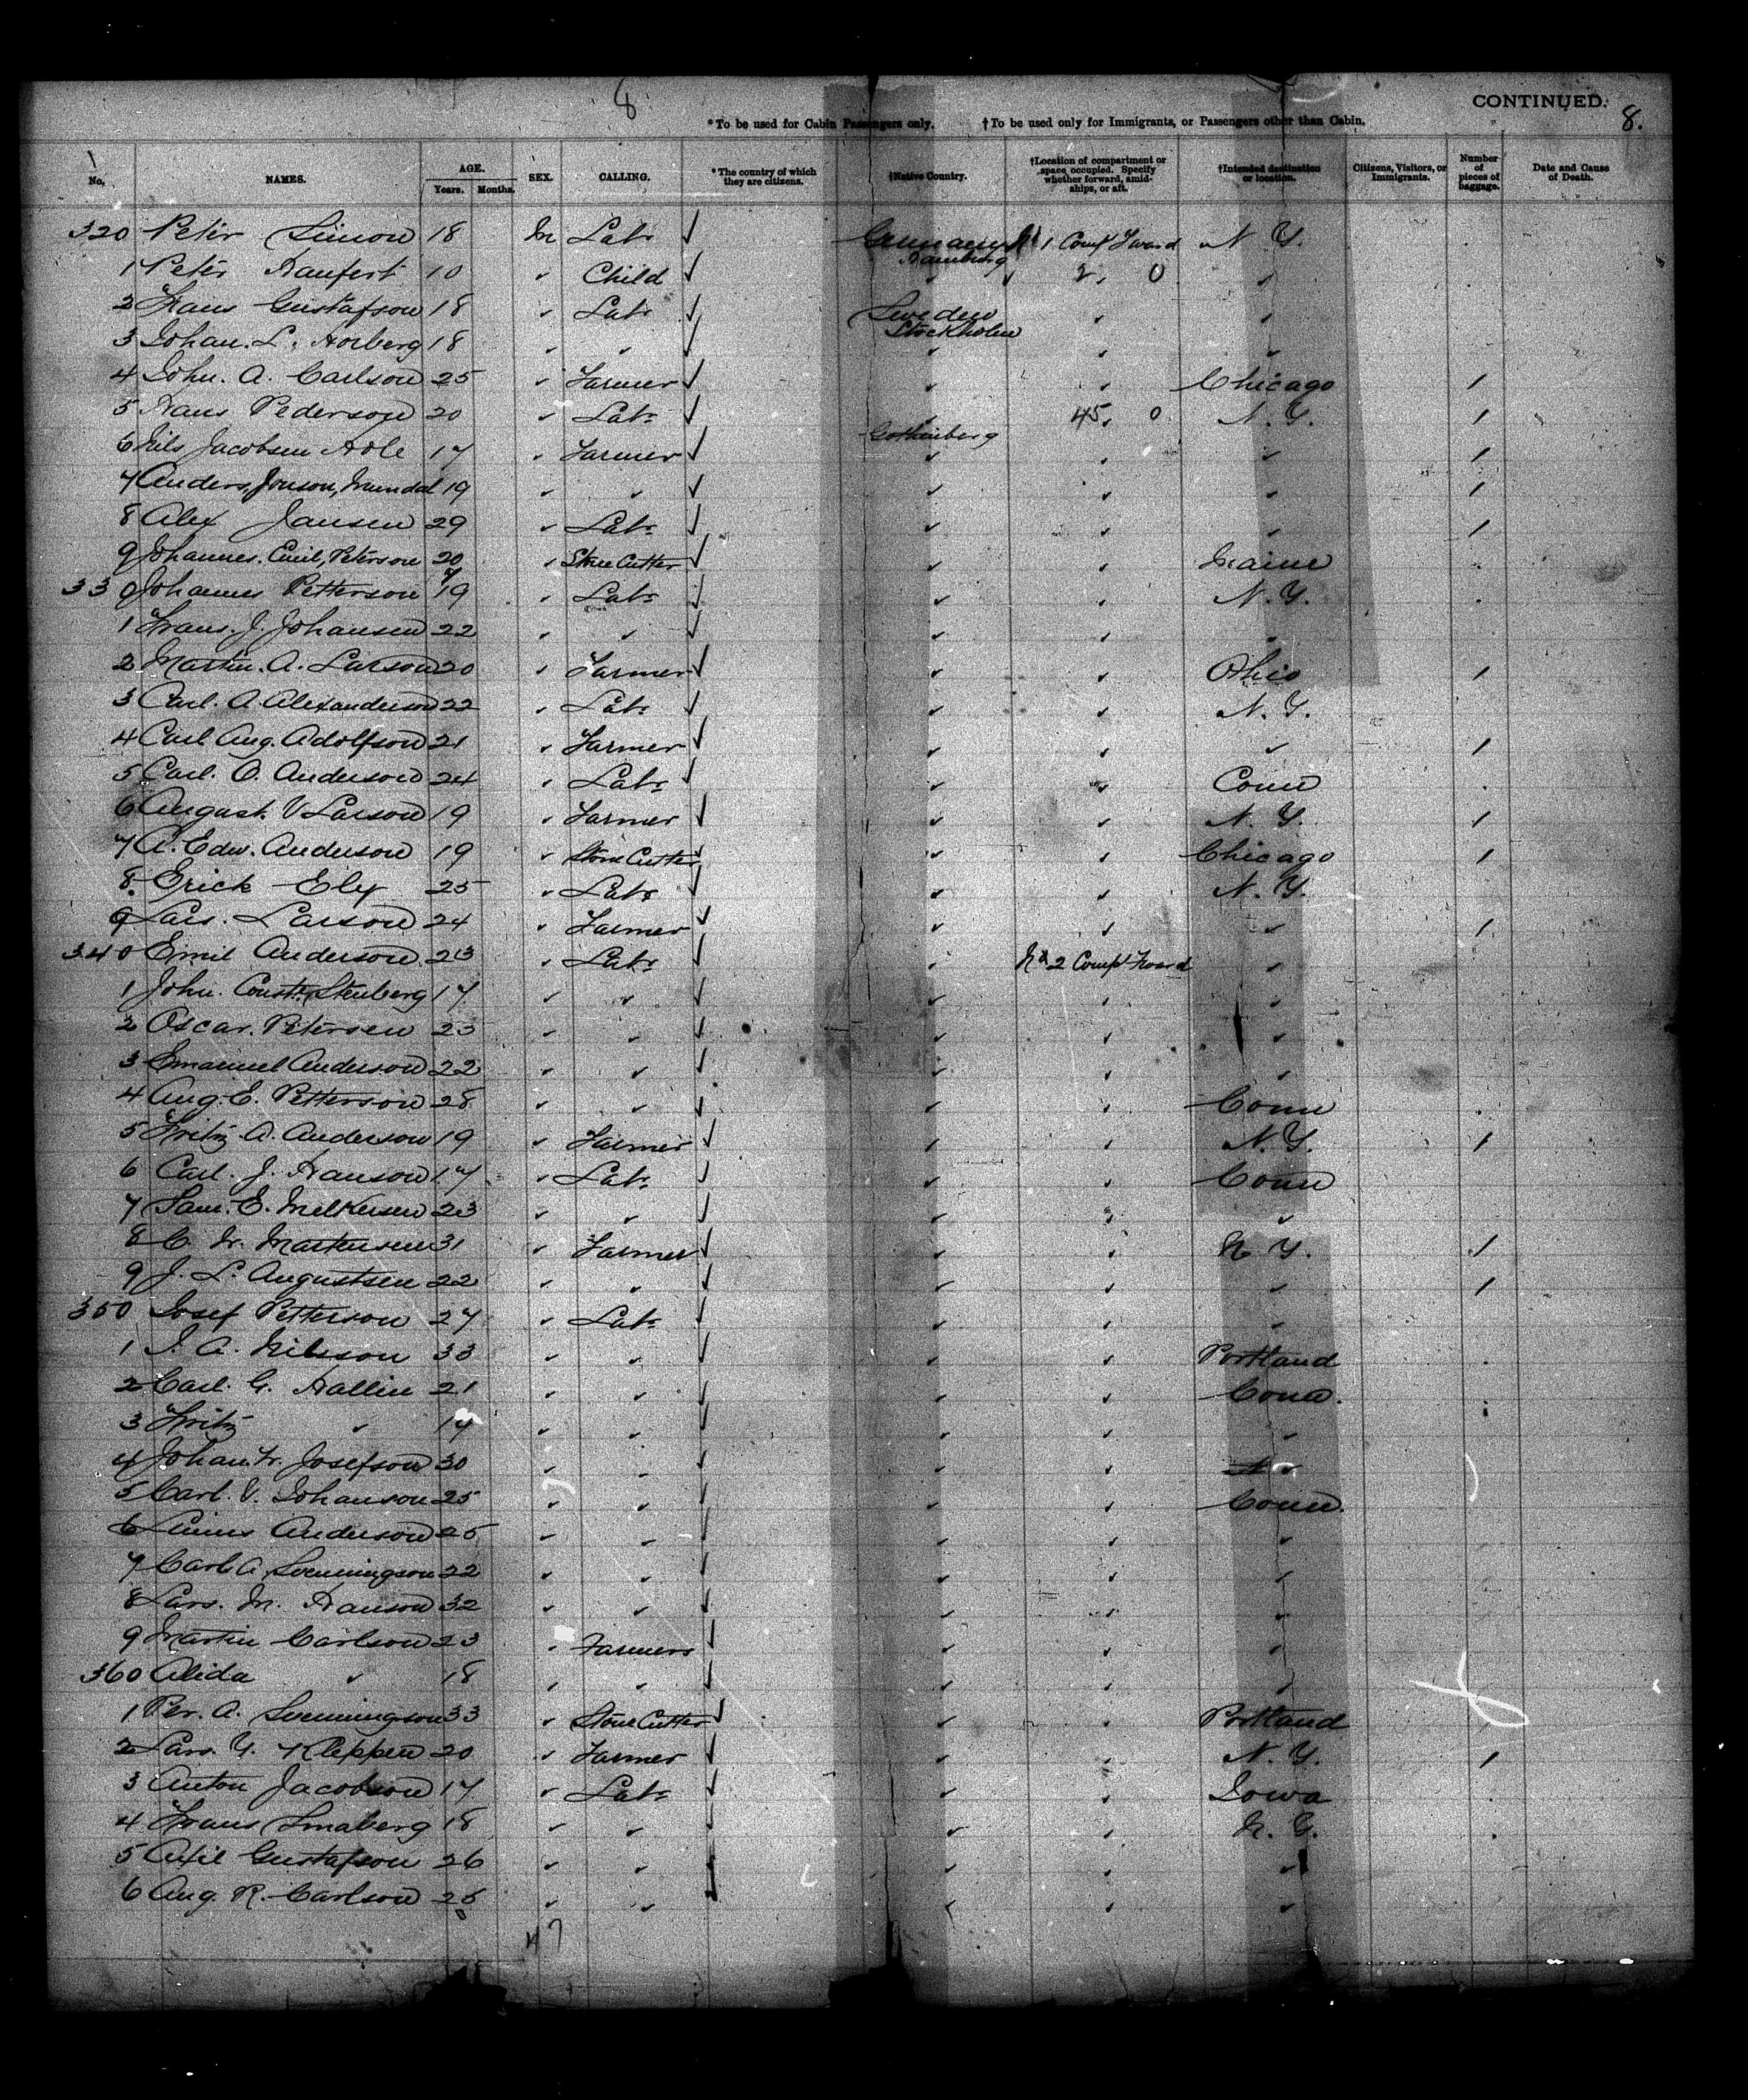 8
CONTINUED.
8.
*To be used for Cabin Passengers only. †To be used only for Immigrants, or Passengers other than Cabin.
No. NAMES. AGE. Years. Months. SEX. CALLING. *The country of which they are citizens. †Native Country. †Location of compartment or space occupied. Specify whether forward, amidships, or aft. †Intended destination or location. Citizens, Visitors, or Immigrants. Number of pieces of baggage. Date and Cause of Death.
320 Peter Simon 18 M Labr ✓ Germany No 1 Compt Forward N. Y.
Hamburg
1 Peter Haufert 10 ✓ Child ✓ ✓ 2, 0 ✓
2 Frans Gustafson 18 ✓ Labr ✓ Sweden ✓ ✓
Stockholm
3 Johan. L. Horberg 18 ✓ ✓ ✓ ✓ ✓ ✓
4 John. A. Carlson 25 ✓ Farmer ✓ ✓ ✓ Chicago 1
5 Hans Pederson 20 ✓ Labr ✓ ✓ 45, 0 N. Y. 1
Gothenberg
6 Nils Jacobsen Hole 17 ✓ Farmer ✓ ✓ ✓ ✓ 1
7 Anders, Jonson, Mundal 19 ✓ ✓ ✓ ✓ ✓ ✓ 1
8 Alex Jansen 29 ✓ Labr ✓ ✓ ✓ ✓ 1
9 Johannes. Emil, Peterson 20 ✓ Stone Cutter ✓ ✓ ✓ Maine
330 Johannes Petterson 19 ✓ Labr ✓ ✓ ✓ N. Y.
1 Frans. J. Johansen 22 ✓ ✓ ✓ ✓ ✓ ✓
2 Martin. A. Larson 20 ✓ Farmer ✓ ✓ ✓ Ohio 1
3 Carl. A. Alexanderson 22 ✓ Labr ✓ ✓ ✓ N. Y.
4 Carl Aug. Adolfson 21 ✓ Farmer ✓ ✓ ✓ ✓ 1
5 Carl. O. Anderson 24 ✓ Labr ✓ ✓ ✓ Conn
6 August. V. Larson 19 ✓ Farmer ✓ ✓ ✓ N. Y. 1
7 A. Edw. Anderson 19 ✓ Stone Cutter ✓ ✓ ✓ Chicago 1
8 Erick Ely 25 ✓ Labr ✓ ✓ ✓ N. Y.
9 Lars. Larson 24 ✓ Farmer ✓ ✓ ✓ ✓ 1
340 Emil Anderson 23 ✓ Labr ✓ ✓ No 2 Compt Forward ✓
1 John. Const. Stenberg 17 ✓ ✓ ✓ ✓ ✓ ✓
2 Oscar. Petersen 25 ✓ ✓ ✓ ✓ ✓ ✓
3 Emanuel Anderson 22 ✓ ✓ ✓ ✓ ✓ ✓
4 Aug. E. Petterson 28 ✓ ✓ ✓ ✓ ✓ Conn
5 Fritz A. Anderson 19 ✓ Farmer ✓ ✓ ✓ N. Y. 1
6 Carl. J. Hanson 17 ✓ Labr ✓ ✓ ✓ Conn
7 Sam. E. Melkersen 23 ✓ ✓ ✓ ✓ ✓ ✓
8 C. Fr. Martensen 31 ✓ Farmer ✓ ✓ ✓ N. Y. 1
9 J. L. Augustsen 22 ✓ ✓ ✓ ✓ ✓ ✓ 1
350 Josef Petterson 27 ✓ Labr ✓ ✓ ✓ ✓
1 I. A. Nilsson 33 ✓ ✓ ✓ ✓ ✓ Portland
2 Carl. G. Hallin 21 ✓ ✓ ✓ ✓ ✓ Conn.
3 Fritz ✓ 17 ✓ ✓ ✓ ✓ ✓ ✓
4 Johan. Fr. Josefson 30 ✓ ✓ ✓ ✓ ✓
5 Carl. V. Johanson 25 ✓ ✓ ✓ ✓ ✓ Conn.
6 Linus Anderson 25 ✓ ✓ ✓ ✓ ✓ ✓
7 Carl A. Svenningson 22 ✓ ✓ ✓ ✓ ✓ ✓
8 Lars. M. Hanson 32 ✓ ✓ ✓ ✓ ✓ ✓
9 Martin Carlson 23 ✓ Farmers ✓ ✓ ✓ ✓
360 Alida ✓ 18 ✓ ✓ ✓ ✓ ✓ ✓
1 Per. A. Svenningson 33 ✓ Stone Cutter ✓ ✓ ✓ Portland
2 Lars. Y. Kleppen 20 ✓ Farmer ✓ ✓ ✓ N. Y. 1
3 Anton Jacobson 17 ✓ Labr ✓ ✓ ✓ Iowa
4 Frans Smaberg 18 ✓ ✓ ✓ ✓ ✓ N. Y.
5 Axil Gustafson 26 ✓ ✓ ✓ ✓ ✓ ✓
6 Aug. R. Carlson 25 ✓ ✓ ✓ ✓ ✓ ✓
47